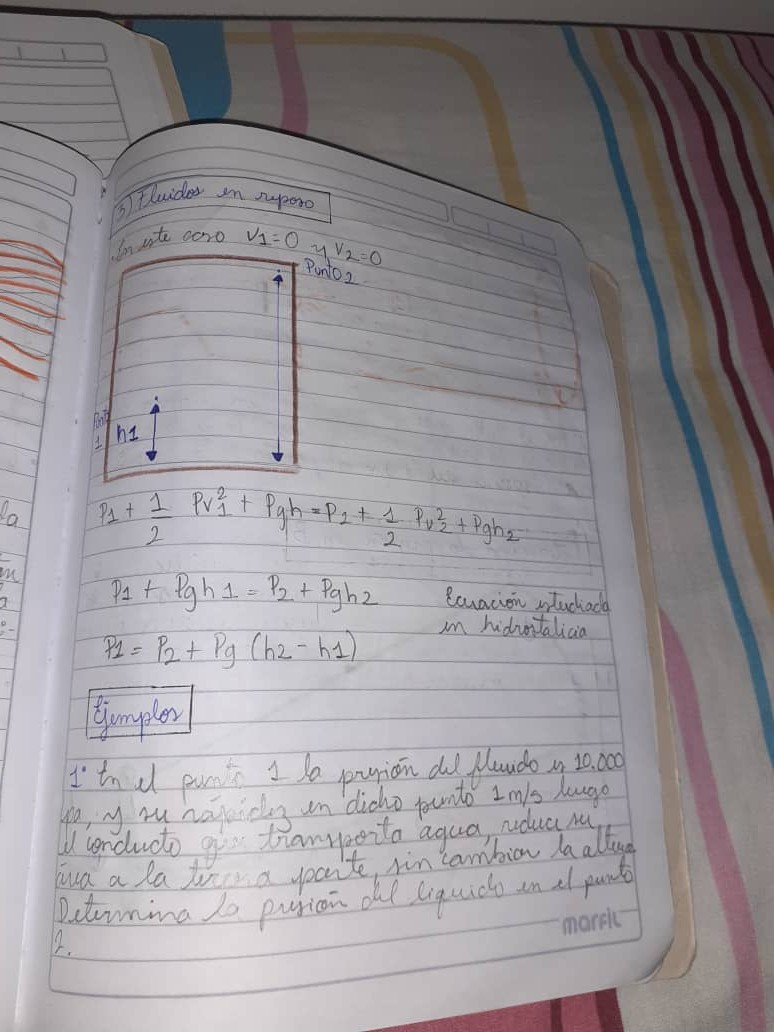 3) Fluidos en reposo
En este caso V1=0 y V2=0
Punto 2
Punto 1
h1
P1 + 1/2 Pv1² + Pgh = P2 + 1/2 Pv2² + Pgh2
P1 + Pgh1 = P2 + Pgh2
Ecuación estudiada
en hidrostalicia
P1 = P2 + Pg (h2 - h1)
Ejemplos
1° En el punto 1 la presión del fluido es 10.000
pa, y su rápidez en dicho punto 1 m/s luego
el conducto que transporta agua, reduce su
área a la tercera parte, sin cambiar la altura
Determina la presión del liquido en el punto
2.
marfil
la